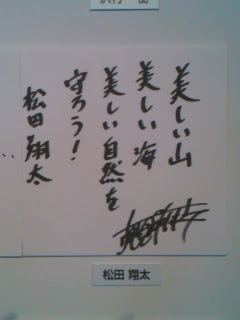 美しい山
美しい海
美しい自然を
守ろう!
松田翔太
松田 翔太